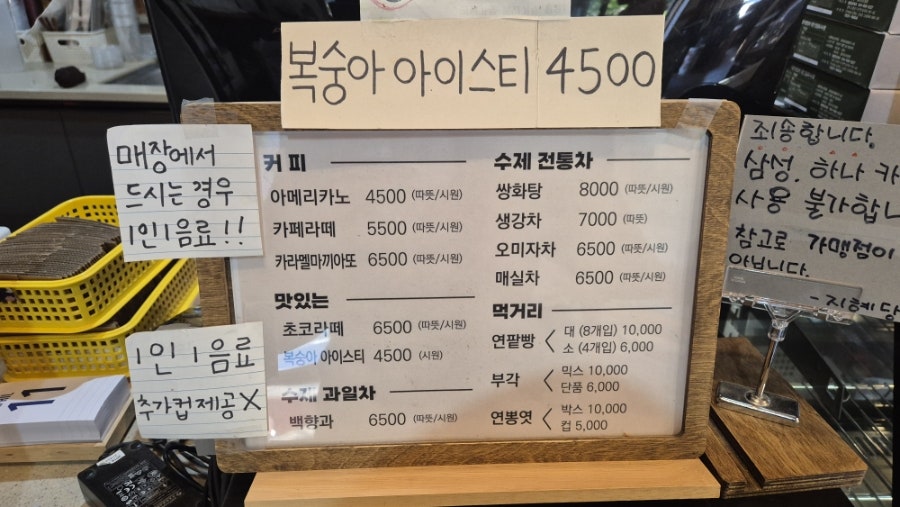 복숭아 아이스티 4500
매장에서
드시는 경우
1인1음료!!
1인 1음료
추가컵제공X
커피
아메리카노 4500 (따뜻/시원)
카페라떼 5500 (따뜻/시원)
카라멜마끼아또 6500 (따뜻/시원)
맛있는
초코라떼 6500 (따뜻/시원)
복숭아 아이스티 4500 (시원)
수제 과일차
백향과 6500 (따뜻/시원)
수제 전통차
쌍화탕 8000 (따뜻/시원)
생강차 7000 (따뜻)
오미자차 6500 (따뜻/시원)
매실차 6500 (따뜻/시원)
먹거리
연팥빵 < 대 (8개입) 10,000
소 (4개입) 6,000
부각 < 믹스 10,000
단품 6,000
연뽕엿 < 박스 10,000
컵 5,000
죄송합니다.
삼성. 하나 카
사용 불가합니
참고로 가맹점이
아닙니다.
- 지혜당
11